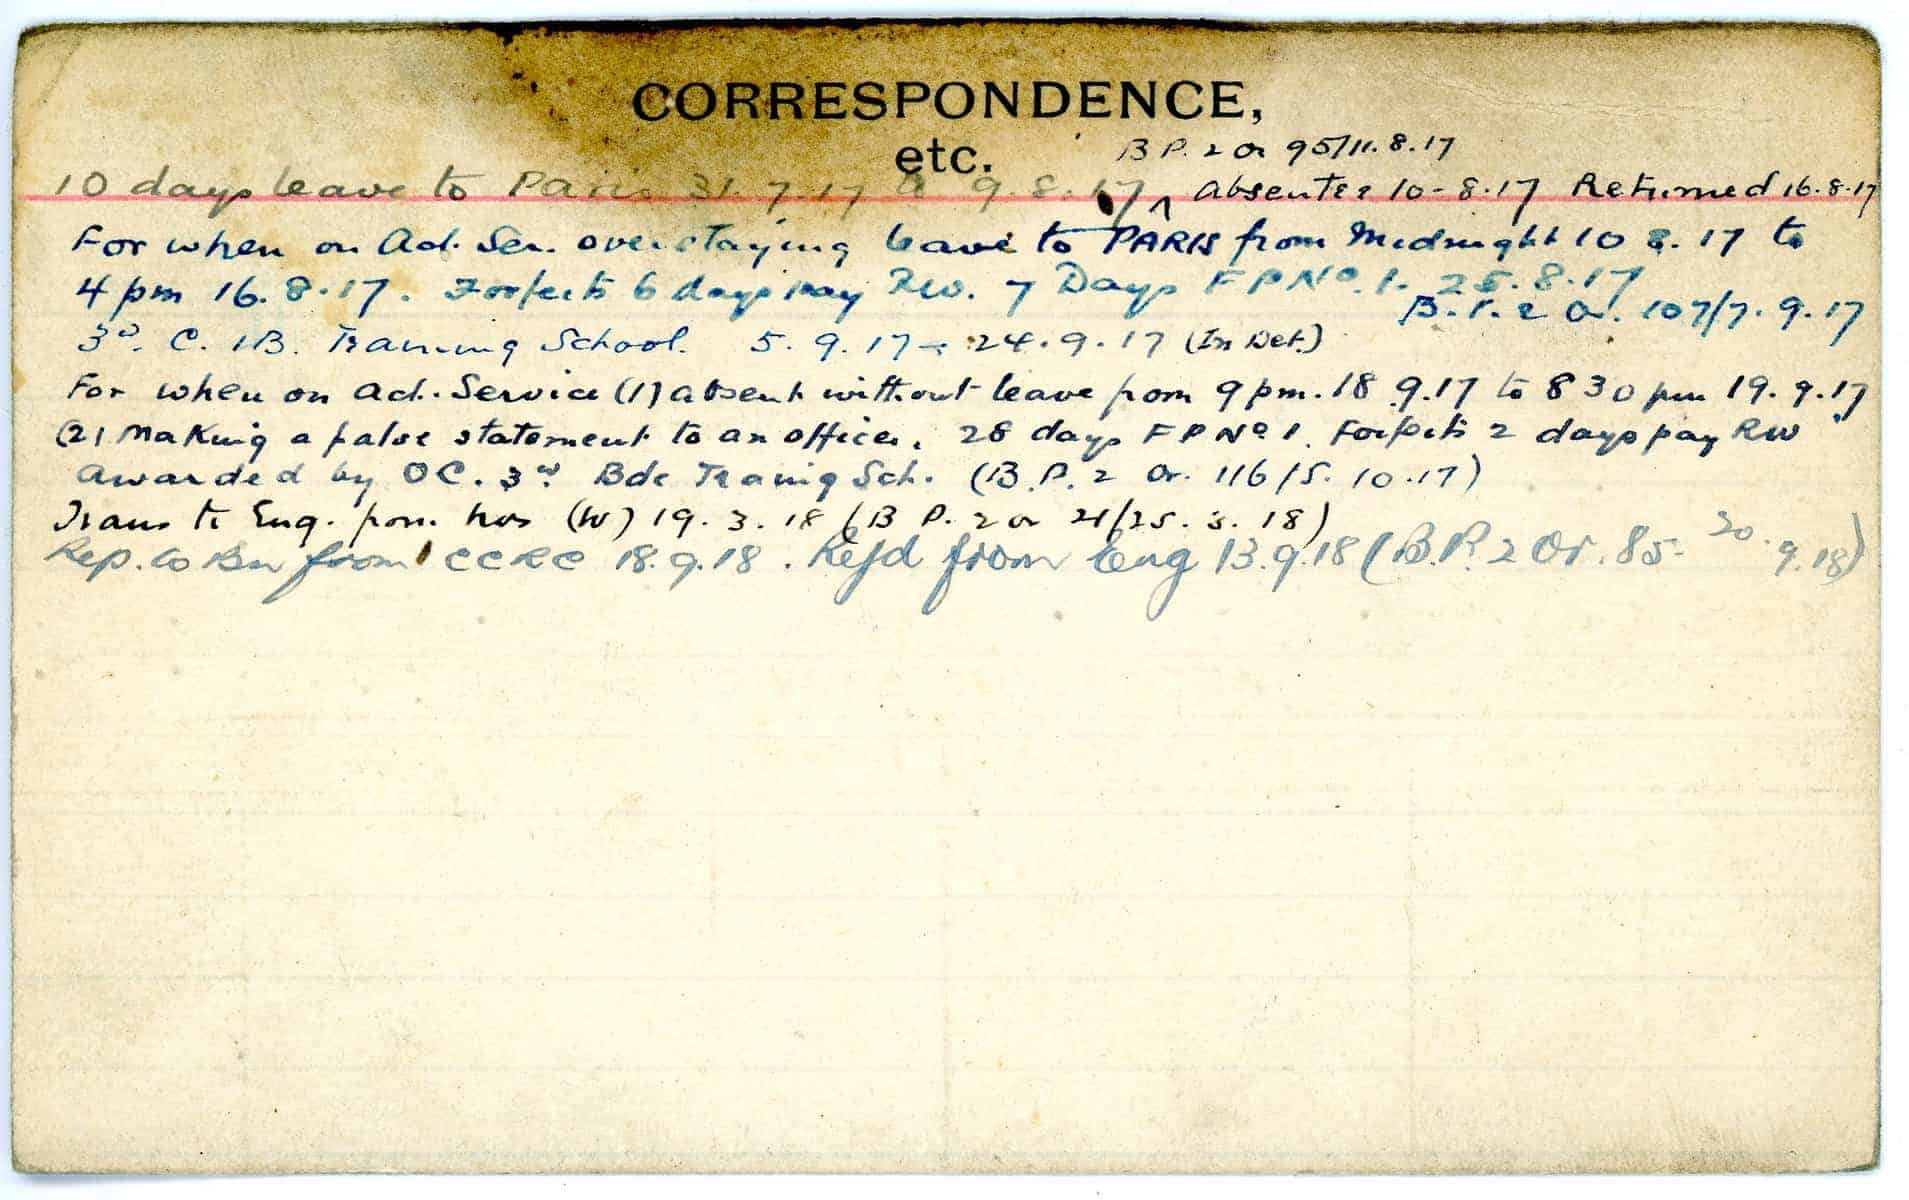 CORRESPONDENCE,
etc.
B P. 2 Or 95/11.8.17
10 days leave to Paris 31.7.17 to 9.8.17 ^ Absentee 10-8.17 Returned 16.8.17
For when on Act. Ser. overstaying leave to PARIS from Midnight 10 8. 17 to
4 pm 16.8.17. Forfeits 6 days pay RW. 7 Days F P No. 1. 25.8.17
B.P. 2 Or. 107/7.9.17
3rd. C. I B. Training School. 5. 9. 17 – 24.9.17 (In Det.)
For when on Act. Service (1) absent without leave from 9 pm. 18 9.17 to 8 30 pm 19.9.17
(2) Making a false statement to an officer, 28 days F P No 1. Forfeits 2 days pay RW
Awarded by OC. 3rd Bde Traing Sch. (B.P. 2 Or. 116/5.10.17)
Trans to Eng. from. hos (W) 19.3.18 (B P. 2 or 21/25.3.18)
Rep. to Bn from CCRC 18.9.18. Rejd from Eng 13.9.18 (B.P. 2 Or. 85- 20.9.18)